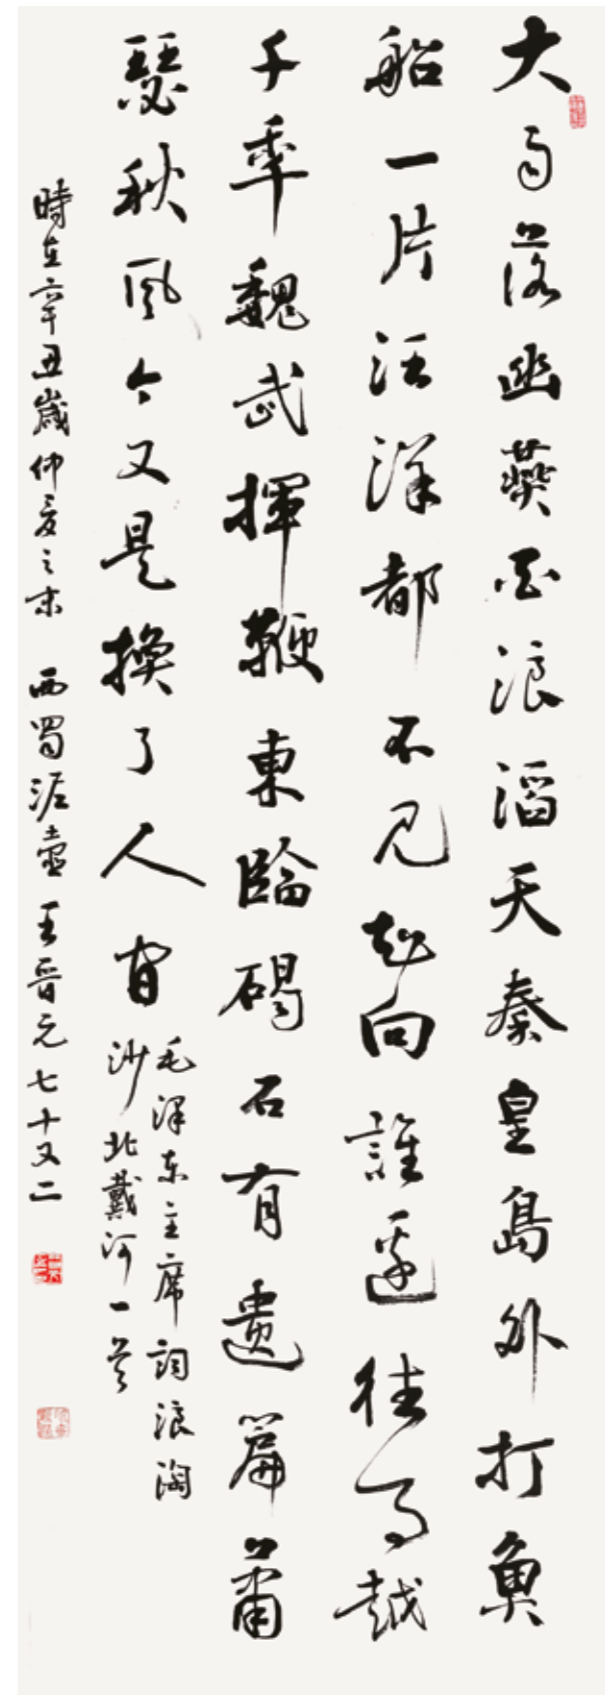 大雨落幽燕白浪滔天秦皇島外打魚
船一片汪洋都不見知向誰邊往事越
千年魏武揮鞭東臨碣石有遺篇蕭
瑟秋風今又是換了人間
毛澤東主席詞浪淘
沙北戴河一首
時在辛丑歲仲夏之末 西蜀 王晉元七十又二